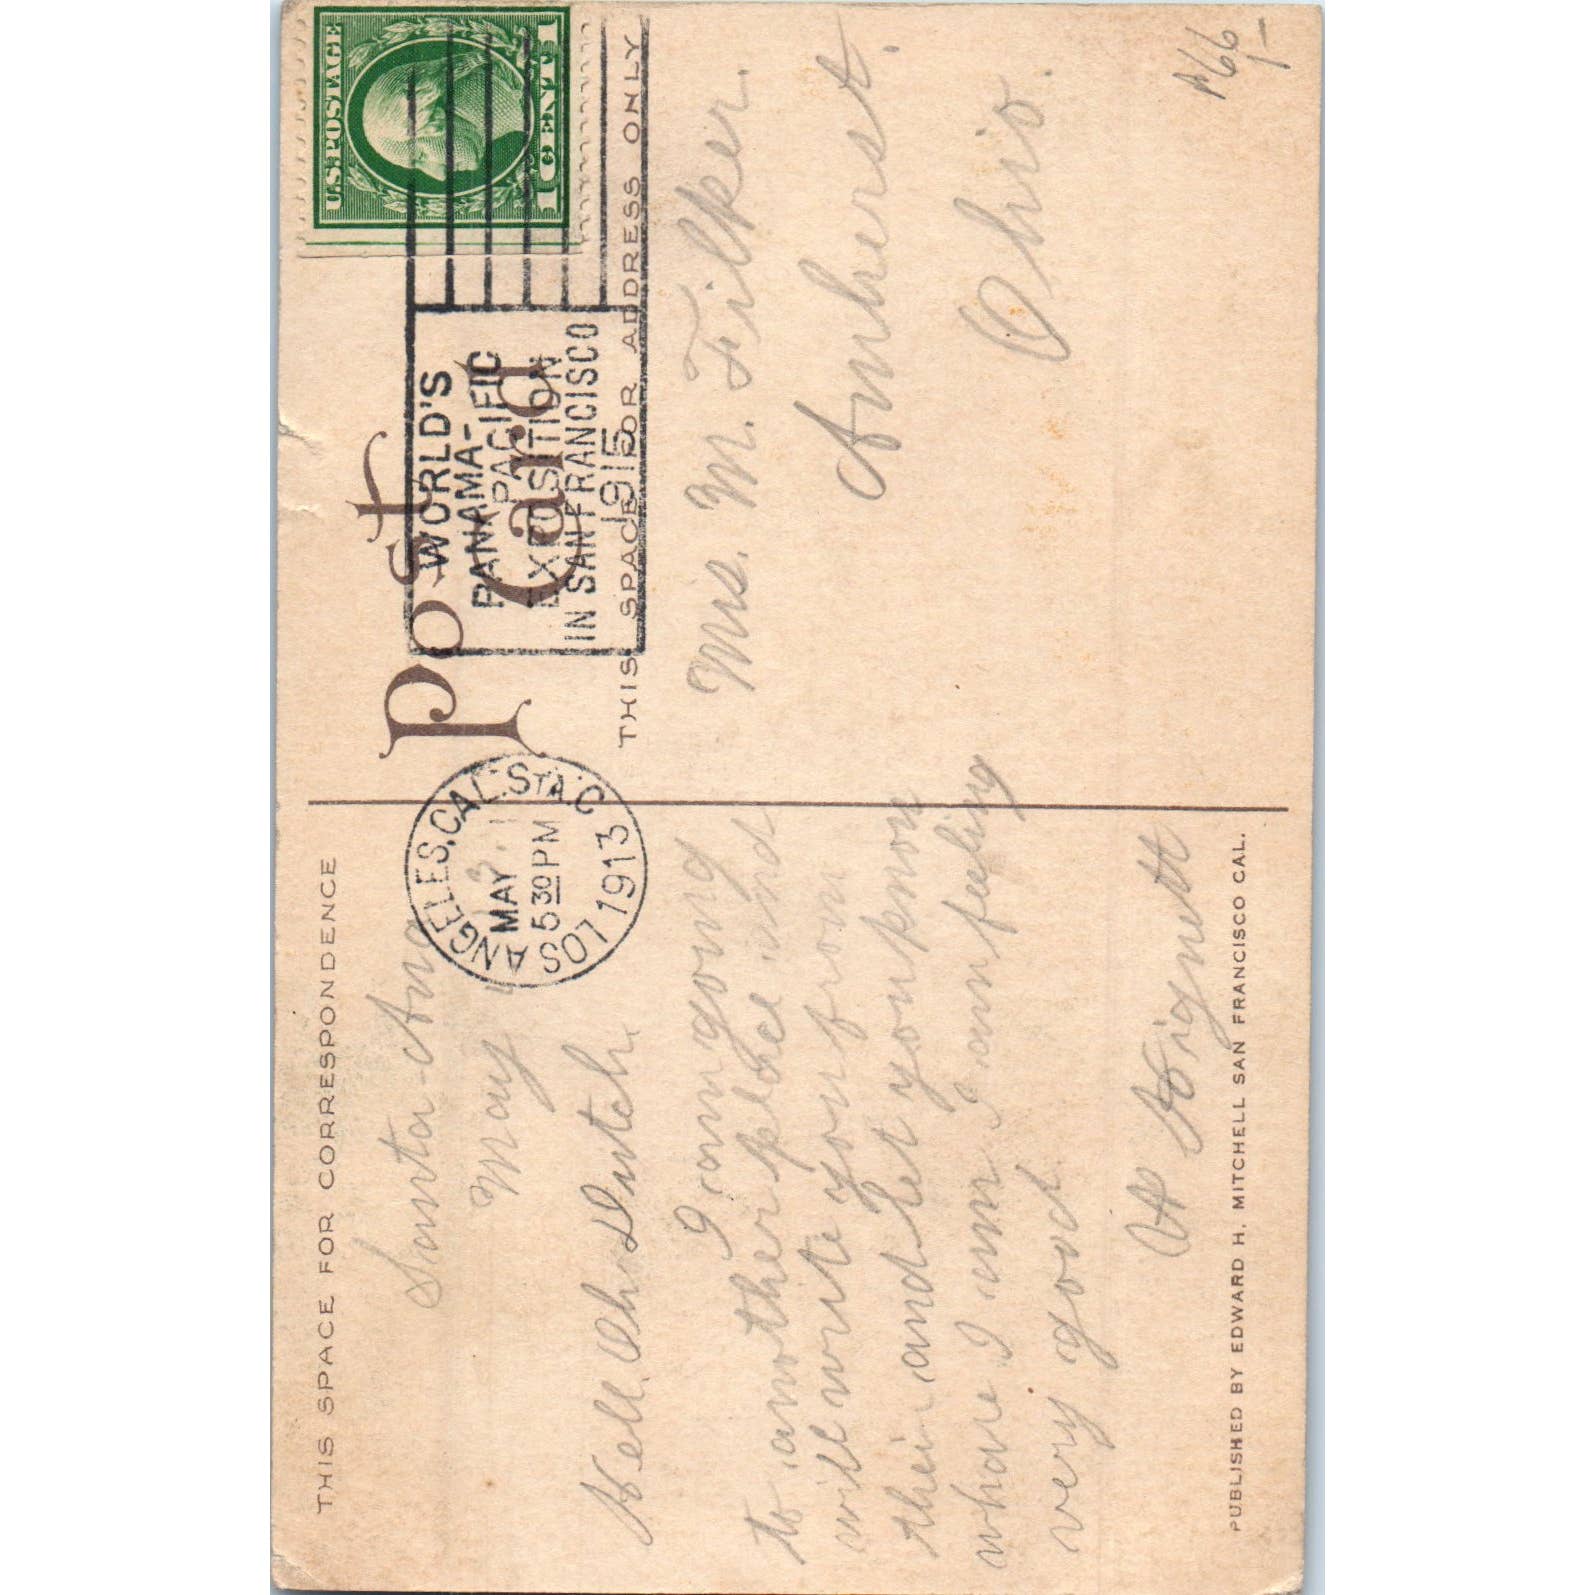 THIS SPACE FOR CORRESPONDENCE
Post
Card
THIS SPACE FOR ADDRESS ONLY
U.S. POSTAGE
1 CENT 1
LOS ANGELES, CAL. STA. C
MAY
5 30 PM
1913
WORLD'S
PANAMA-
PACIFIC
EXPOSITION
IN SAN FRANCISCO
1915
Santa-Ana
May
Hell Oh Dutch.
I am going
to another place and
will write you from
their and let you know
whare I am I am feeling
very good.
Mrs. M. Filker.
Amherst.
Ohio.
PUBLISHED BY EDWARD H. MITCHELL SAN FRANCISCO CAL.